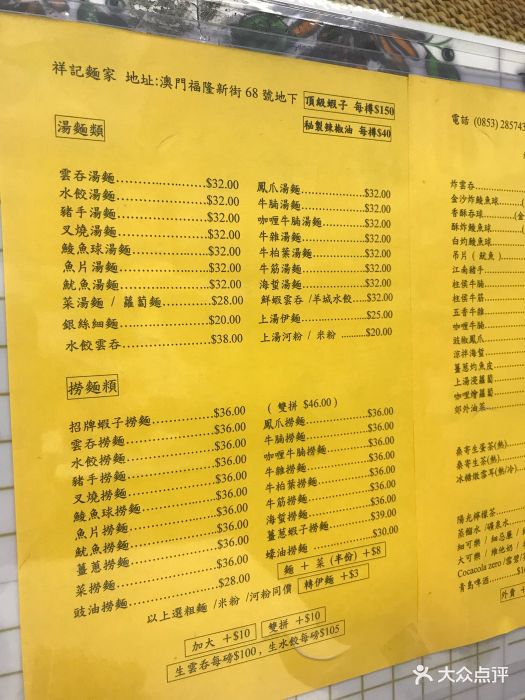 祥記麵家 地址:澳門福隆新街68號地下
頂級蝦子 每樽$150
秘製辣椒油 每樽$40
湯麵類
雲吞湯麵..................$32.00
水餃湯麵..................$32.00
豬手湯麵..................$32.00
叉燒湯麵..................$32.00
鯪魚球湯麵...............$32.00
魚片湯麵..................$32.00
魷魚湯麵..................$32.00
菜湯麵 / 蘿蔔麵.........$28.00
銀絲細麵..................$20.00
水餃雲吞..................$38.00
鳳爪湯麵..................$32.00
牛腩湯麵..................$32.00
咖喱牛腩湯麵............$32.00
牛雜湯麵..................$32.00
牛柏葉湯麵...............$32.00
牛筋湯麵..................$32.00
海蜇湯麵..................$32.00
鮮蝦雲吞 /羊城水餃....$32.00
上湯伊麵..................$25.00
上湯河粉 / 米粉 .........$20.00
撈麵類
招牌蝦子撈麵............$36.00
雲吞撈麵..................$36.00
水餃撈麵..................$36.00
豬手撈麵..................$36.00
叉燒撈麵..................$36.00
鯪魚球撈麵...............$36.00
魚片撈麵..................$36.00
魷魚撈麵..................$36.00
薑蔥撈麵..................$36.00
菜撈麵.....................$36.00
豉油撈麵..................$28.00
( 雙拼 $46.00)
鳳爪撈麵..................$36.00
牛腩撈麵..................$36.00
咖喱牛腩撈麵............$36.00
牛雜撈麵..................$36.00
牛柏葉撈麵...............$36.00
牛筋撈麵..................$36.00
海蜇撈麵..................$36.00
薑蔥蝦子撈麵............$39.00
蠔油撈麵..................$30.00
麵 + 菜 (半份) +$8
以上選粗麵 /米粉 /河粉同價
轉伊麵 +$3
加大 +$10
雙拼 +$10
生雲吞每磅$100, 生水餃每磅$105
電話 (0853) 285743
炸雲吞
金沙炸鯪魚球
香酥吞球
酥炸鯪魚球
白灼鯪魚球
吊片 ( 魷魚 )
江南豬手
柱侯牛腩
柱侯牛筋
五香牛雜
咖喱牛腩
豉椒鳳爪
涼拌海蜇
薑蔥灼魚皮
上湯浸蘿蔔
咖喱燴蘿蔔
郊外油菜
桑寄生蛋茶(熱)
桑寄生茶(熱)
冰糖燉雪耳(熱/冷)
陽光檸檬茶
蒸餾水 /礦泉水
細可樂 / 細忌廉 /
大可樂 / 維他奶 /
Cocacola zero /雪碧
青島啤酒
外賣 +
大众点评